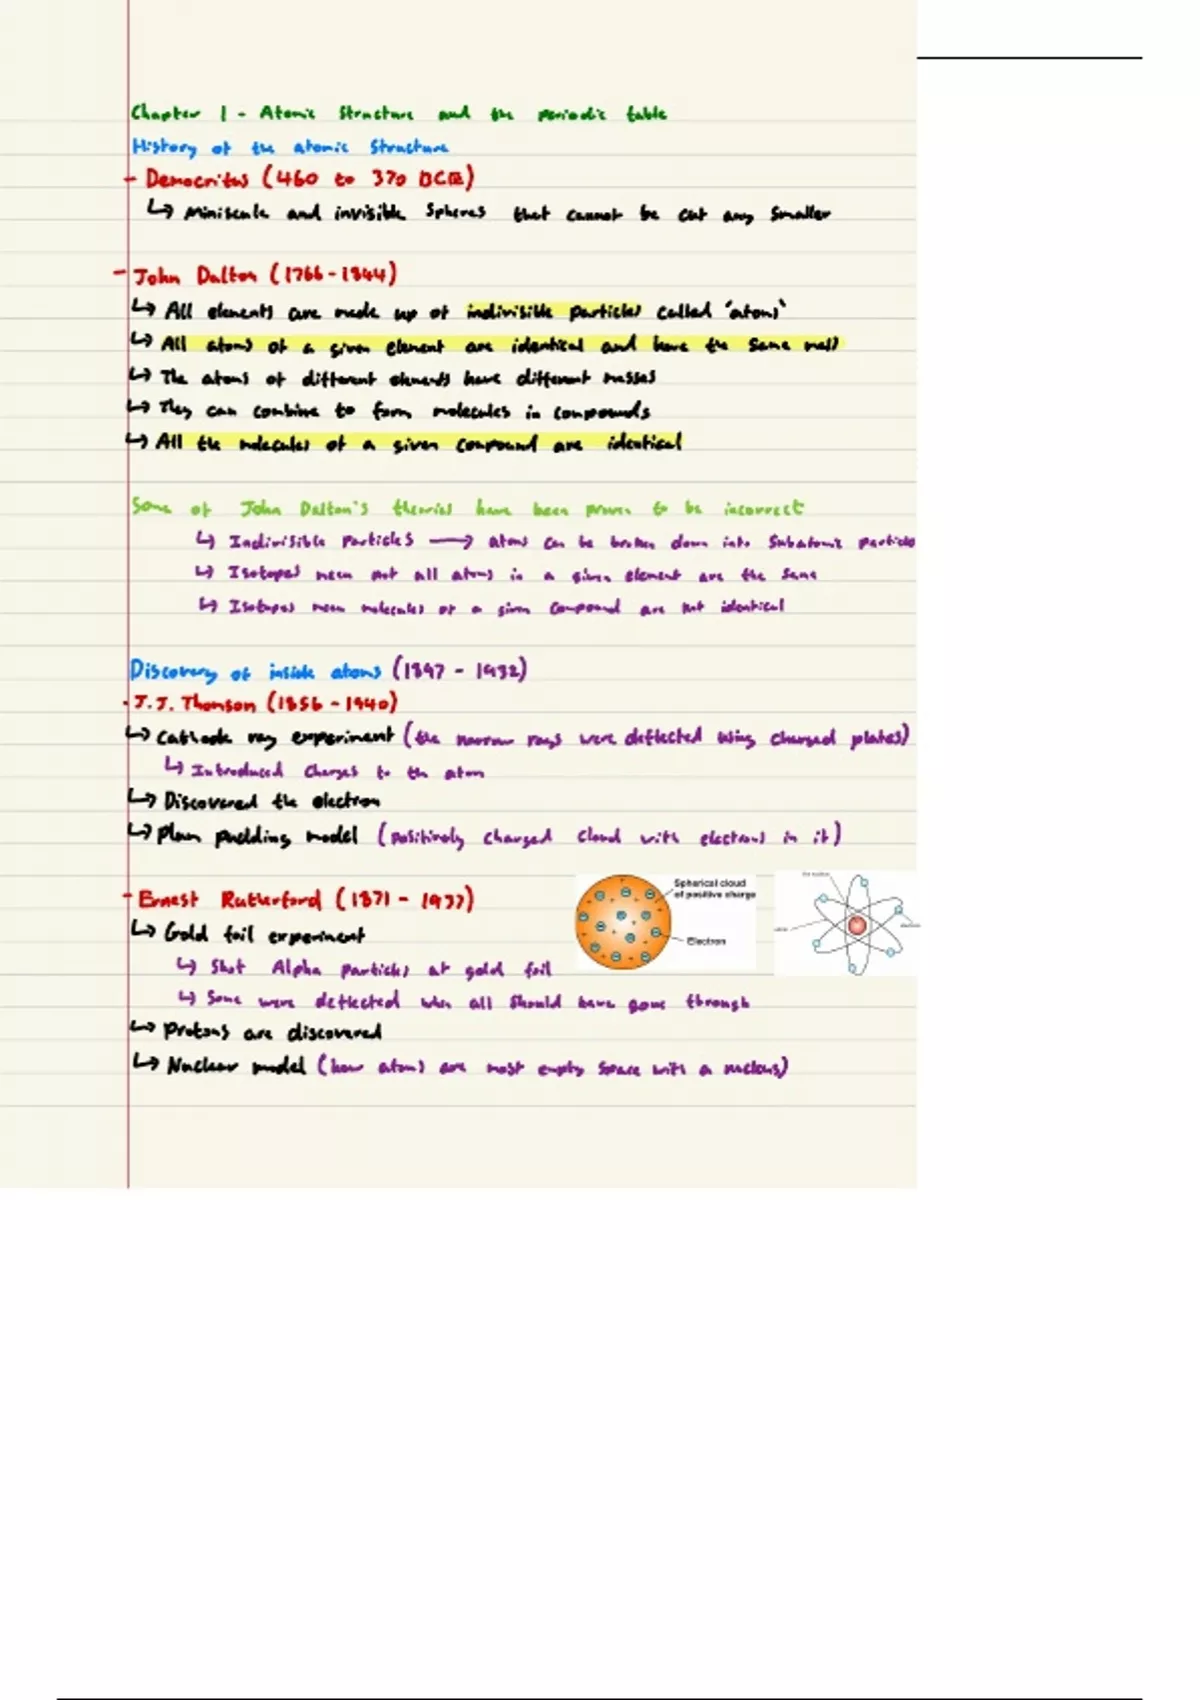 Chapter 1 - Atomic Structure and the periodic table
History of the atomic Structure
- Democritus (460 to 370 BCE)
↳ Miniscule and invisible Spheres that cannot be cut any smaller
- John Dalton (1766-1844)
↳ All elements are made up of indivisible particles called 'atoms'
↳ All atoms of a given element are identical and have the same mass
↳ The atoms of different elements have different masses
↳ They can combine to form molecules in compounds
↳ All the molecules of a given compound are identical
Some of John Dalton's theories have been proven to be incorrect
↳ Indivisible Particles → atoms can be broken down into Subatomic particles
↳ Isotopes mean not all atoms in a given element are the same
↳ Isotopes mean molecules of a given compound are not identical
Discovery of inside atoms (1897 - 1932)
- J.J. Thomson (1856-1940)
↳ Cathode ray experiment (the narrow rays were deflected using charged plates)
↳ Introduced charges to the atom
↳ Discovered the electron
↳ Plum pudding model (positively charged cloud with electrons in it)
- Ernest Rutherford (1871 - 1937)
Spherical cloud
of positive charge
Electron
↳ Gold foil experiment
↳ Shot Alpha particles at gold foil
↳ Some were deflected when all should have gone through
↳ Protons are discovered
↳ Nuclear model (how atoms are most empty space with a nucleus)